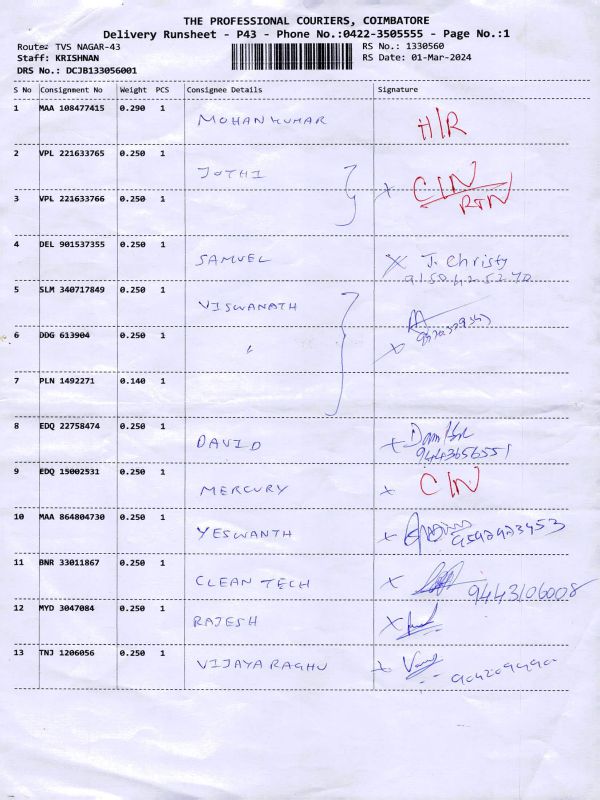 THE PROFESSIONAL COURIERS, COIMBATORE
Delivery Runsheet - P43 - Phone No.:0422-3505555 - Page No.:1
Route: TVS NAGAR-43 RS No.: 1330560
Staff: KRISHNAN RS Date: 01-Mar-2024
DRS No.: DCJB133056001
S No Consignment No Weight PCS Consignee Details Signature
1 MAA 108477415 0.290 1 MOHANKUMAR H/R
2 VPL 221633765 0.250 1 JOTHI C/N
RTN
3 VPL 221633766 0.250 1
4 DEL 901537355 0.250 1 SAMUEL X J. Christy
9150425270
5 SLM 340717849 0.250 1 VISWANATH
6 DDG 613904 0.250 1 X
7 PLN 1492271 0.140 1
8 EDQ 22758474 0.250 1 DAVID X
9443656551
9 EDQ 15002531 0.250 1 MERCURY X C/N
10 MAA 864804730 0.250 1 YESWANTH X
11 BNR 33011867 0.250 1 CLEAN TECH X 9443106008
12 MYD 3047084 0.250 1 RAJESH X
13 TNJ 1206056 0.250 1 VIJAYA RAGHU X